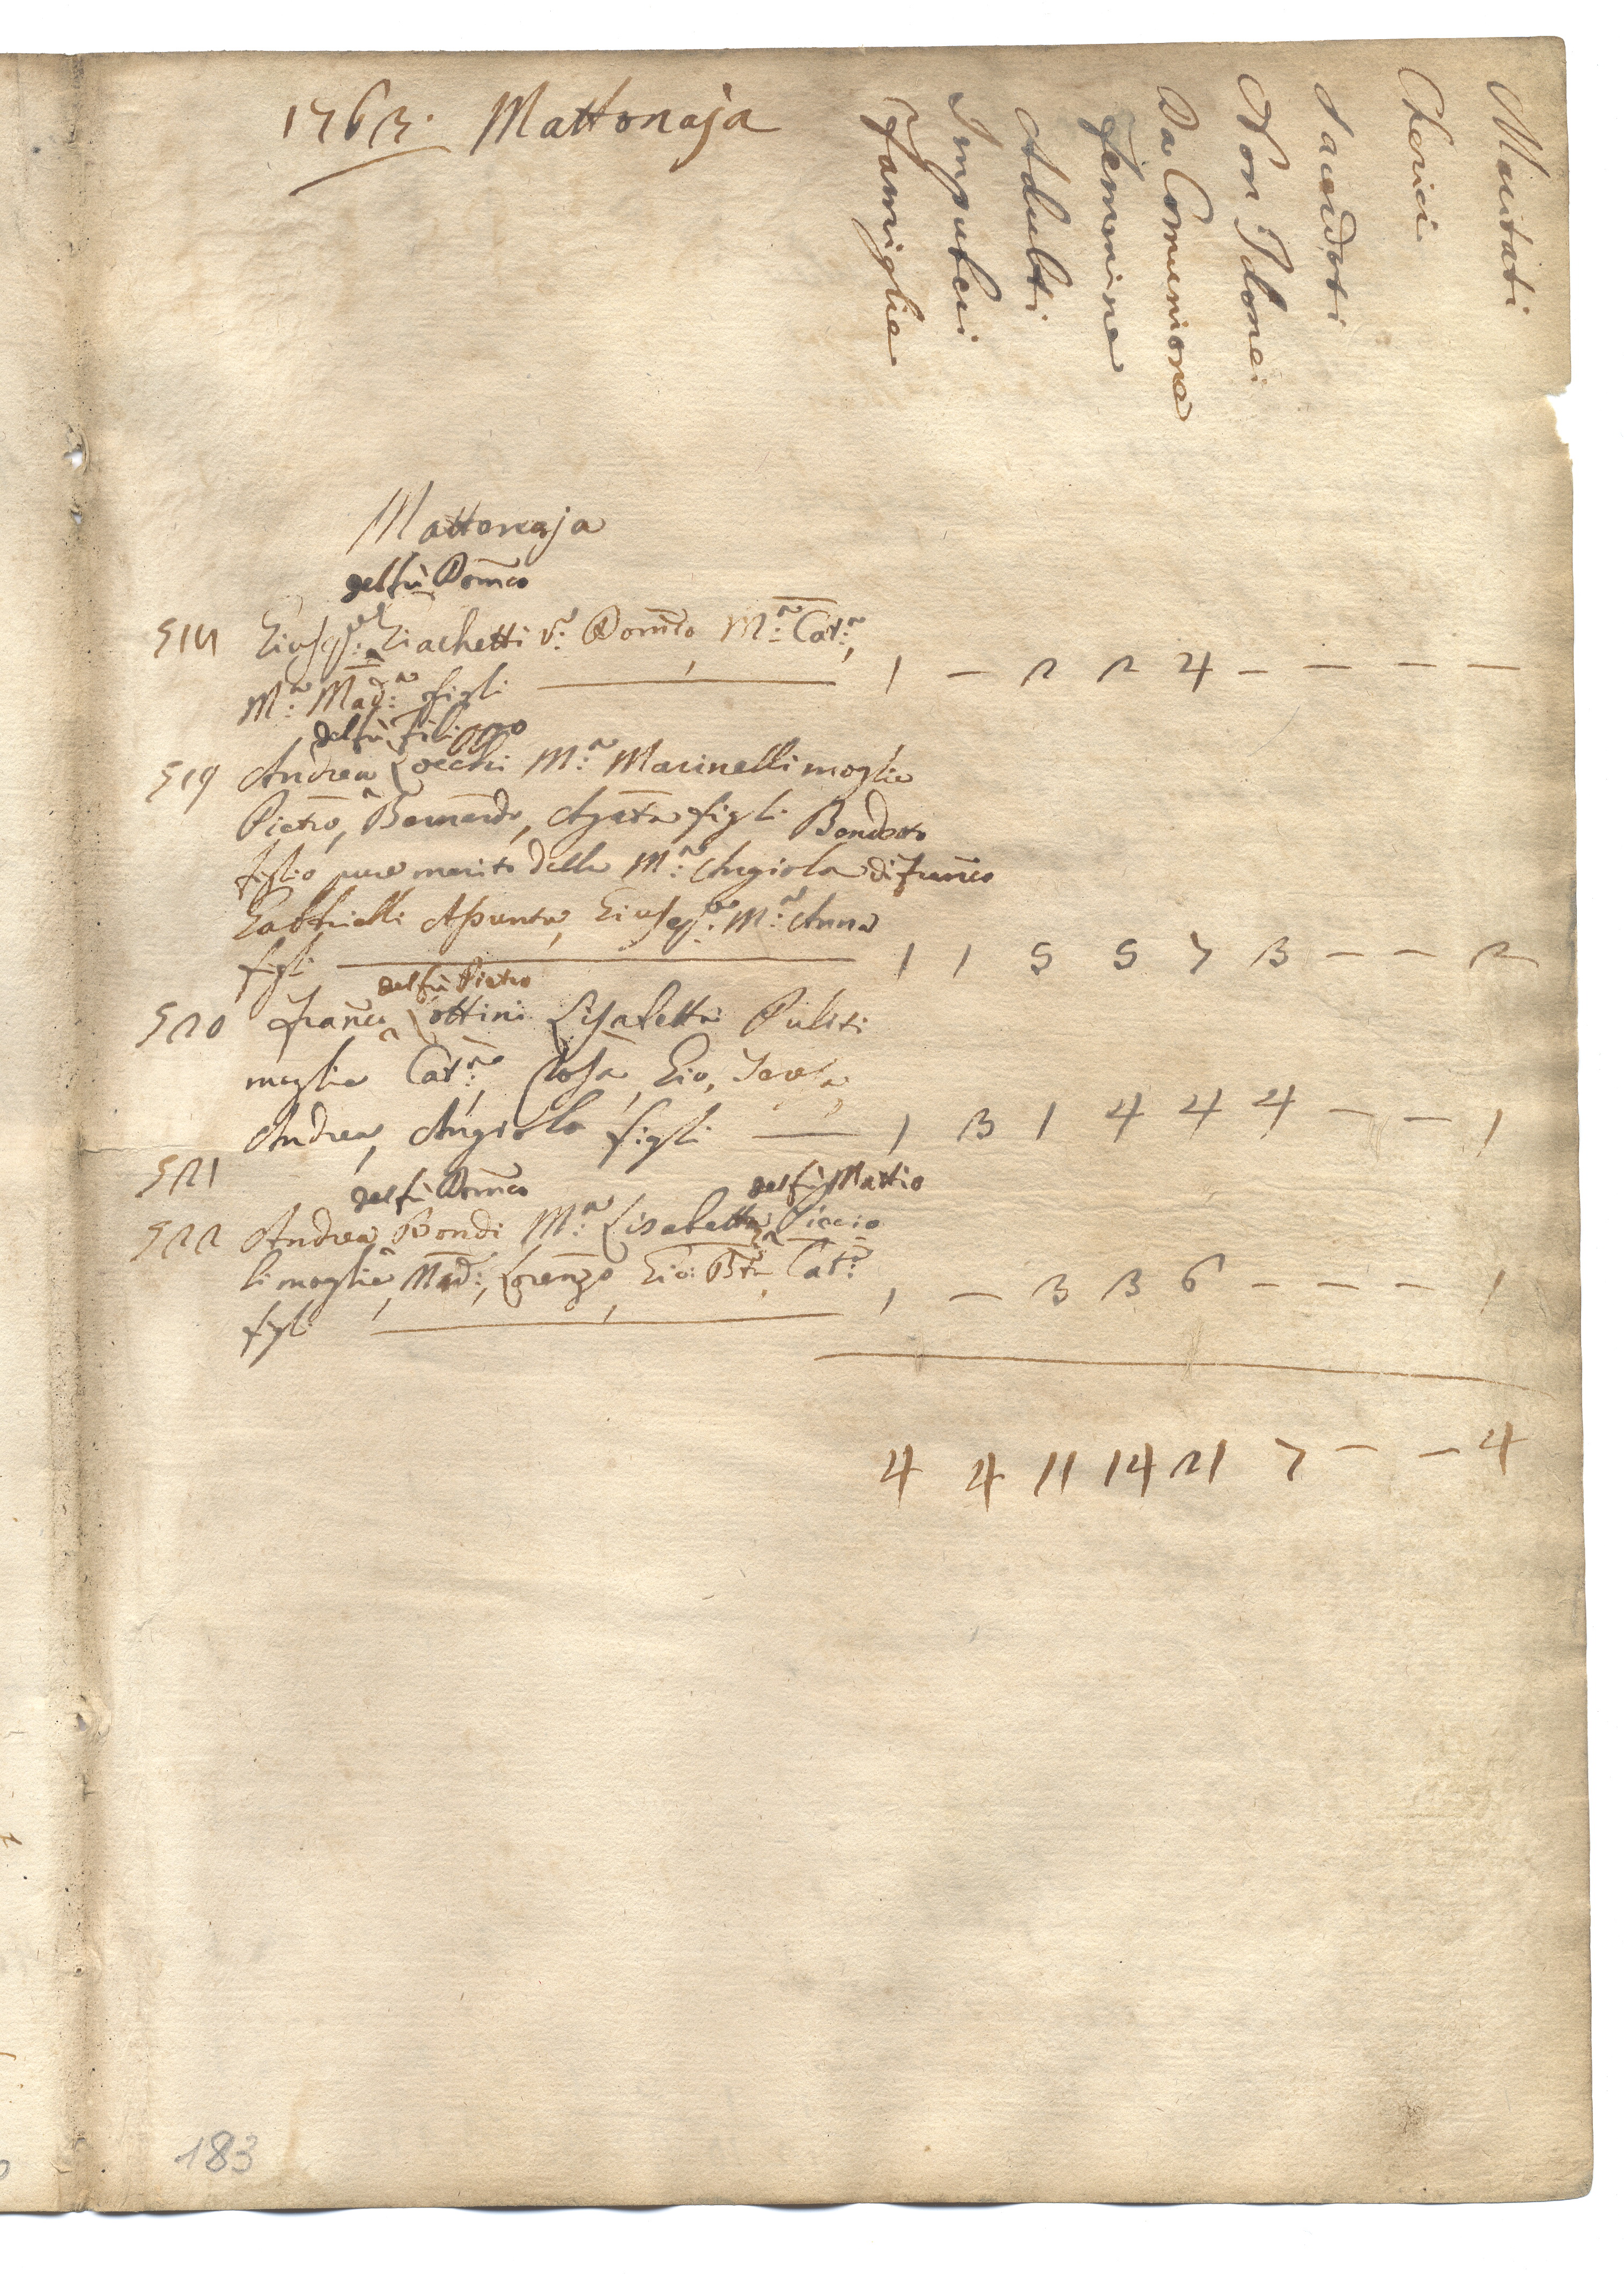 1763. Mattonaja
Famiglie
Impuberi
Adulti
Femmine
Da Comunione
Non Idonei
Sacerdoti
Cherici
Maritati
Mattonaja
del fù Dom̃co
518 Giusep̃: Giachetti V: Dom̃co M:ᵃ Cat:ᵃ,
M:ᵃ Mad:ᵃ figli — 1 — 2 2 4 — — — —
del fù Filippo
519 Andrea Locchi M:ᵃ Marinelli moglie
Pietro, Bernardo, Agata figli Benedetto
figlio pure marito della M:ᵃ Angiola di Franco
Gabbrielli Assunta, Giusep̃: M:ᵃ Anna
figli — 1 1 5 5 7 3 — — 2
del fù Pietro
520 Franco Lottini Lisabetta Puliti
moglie Cat:ᵃ, Rosa, Gio, Teresa,
Andrea, Angiolo figli — 1 3 1 4 4 4 — — 1
521
del fù Dom̃co del fù Mattio
522 Andrea Bondi M:ᵃ Lisabetta Piccio
li moglie, Mad:, Lorenzo, Gio: Btã, Cat:ᵃ
figli — 1 — 3 3 6 — — — 1
4 4 11 14 21 7 — — 4
183